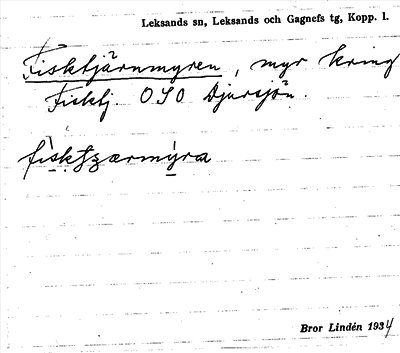 Leksands sn, Leksands och Gagnefs tg, Kopp. l.
Fisktjärnmyren, myr kring
Fisktj. OSO Djursjön.
Bror Lindén 1934